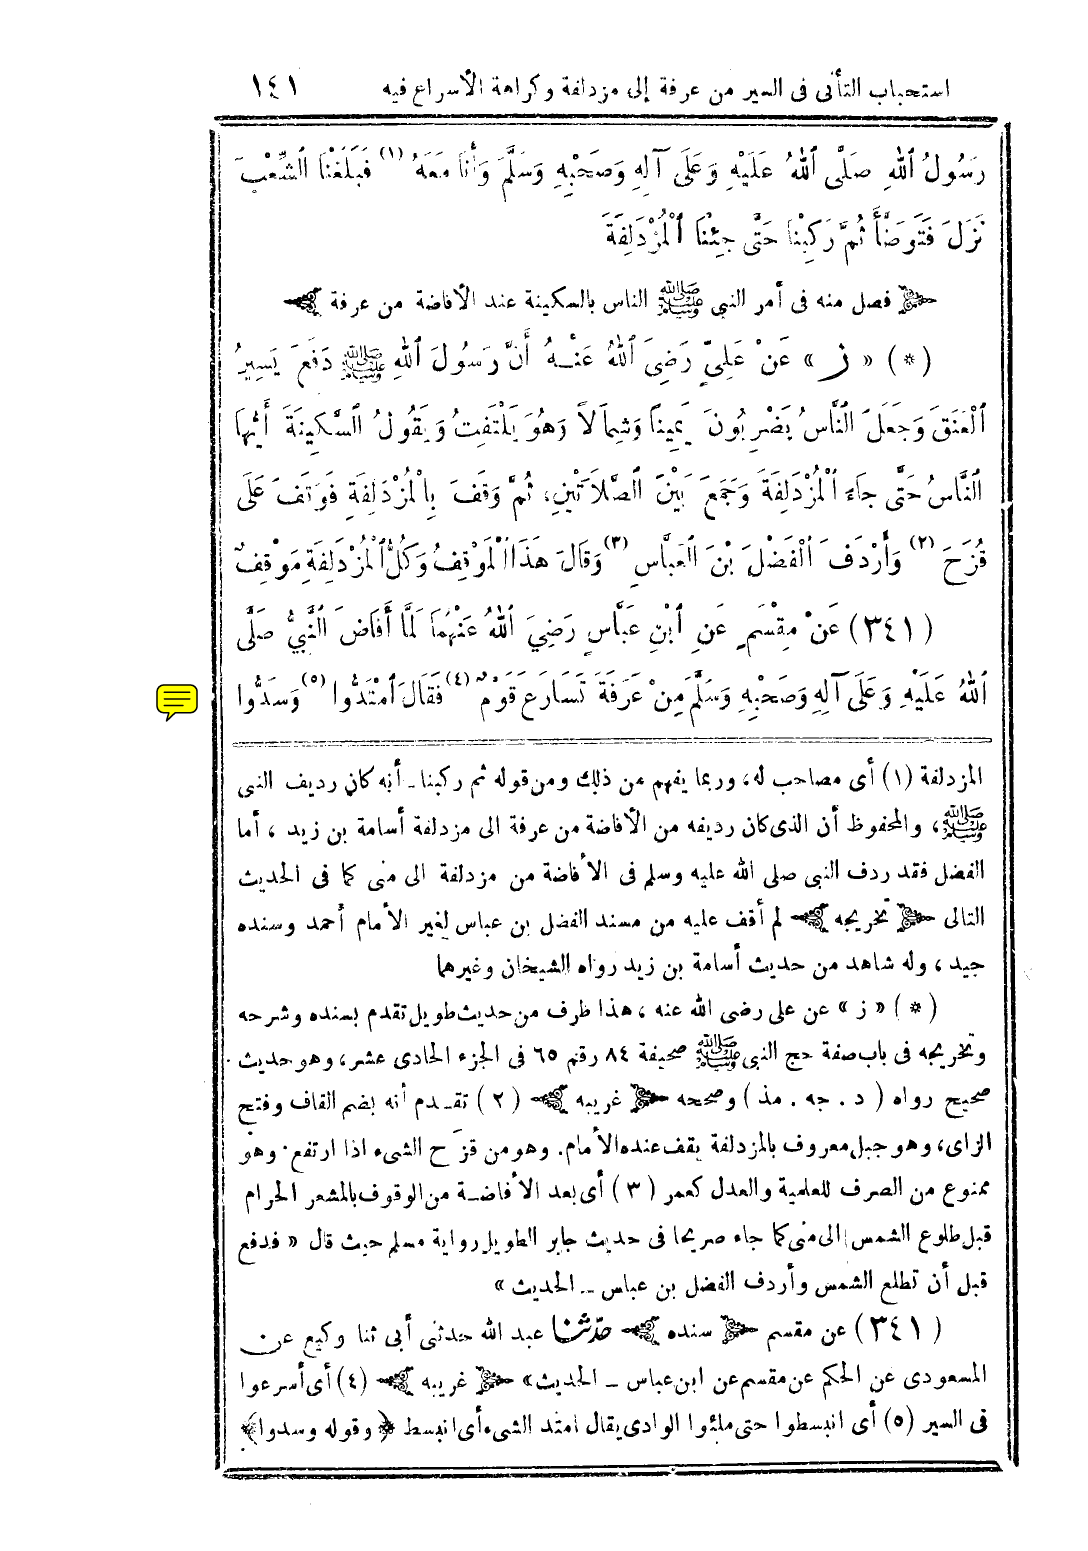 استحباب التأنى فى السير من عرفة إلى مزدلفة وكراهة الأسراع فيه ١٤١
رَسُولُ ٱللهِ صَلَّى ٱللهُ عَلَيْهِ وَعَلَى آلِهِ وَصَحْبِهِ وَسَلَّمَ وَأَنَا مَعَهُ (١) فَبَلَغْنَا ٱلشِّعْبَ
نَزَلَ فَتَوَضَّأَ ثُمَّ رَكِبْنَا حَتَّى جِئْنَا ٱلْمُزْدَلِفَةَ
فصل منه فى أمر النبى ﷺ الناس بالسكينة عند الأفاضة من عرفة
(*) « ز » عَنْ عَلِىٍّ رَضِىَ ٱللهُ عَنْهُ أَنَّ رَسُولَ ٱللهِ ﷺ دَفَعَ يَسِيرُ
ٱلْعَنَقَ وَجَعَلَ ٱلنَّاسُ يَضْرِبُونَ يَمِيناً وَشِمَالاً وَهُوَ يَلْتَفِتُ وَيَقُولُ ٱلسَّكِينَةَ أَيُّهَا
ٱلنَّاسُ حَتَّى جَاءَ ٱلْمُزْدَلِفَةَ وَجَمَعَ بَيْنَ ٱلصَّلاَتَيْنِ، ثُمَّ وَقَفَ بِالْمُزْدَلِفَةِ فَوَقَفَ عَلَى
قُزَحَ (٢) وَأَرْدَفَ ٱلْفَضْلَ بْنَ ٱلْعَبَّاسِ (٣) وَقَالَ هَذَا ٱلْمَوْقِفُ وَكُلُّ ٱلْمُزْدَلِفَةِ مَوْقِفٌ
(٣٤١) عَنْ مِقْسَمٍ عَنِ ٱبْنِ عَبَّاسٍ رَضِيَ ٱللهُ عَنْهُمَا لَمَّا أَفَاضَ ٱلنَّبِيُّ صَلَّى
ٱللهُ عَلَيْهِ وَعَلَى آلِهِ وَصَحْبِهِ وَسَلَّمَ مِنْ عَرَفَةَ تَسَارَعَ قَوْمٌ (٤) فَقَالَ ٱمْتَدُّوا (٥) وَسَدُّوا
المزدلفة (١) أى مصاحب له، وربما يفهم من ذلك ومن قوله ثم ركبنا ـ أنه كان رديف النبى
ﷺ، والمحفوظ أن الذى كان رديفه من الأفاضة من عرفة الى مزدلفة أسامة بن زيد ، أما
الفضل فقد ردف النبى صلى الله عليه وسلم فى الأفاضة من مزدلفة الى منى كما فى الحديث
التالى تخريجه لم أقف عليه من مسند الفضل بن عباس لغير الأمام أحمد وسنده
جيد ، وله شاهد من حديث أسامة بن زيد رواه الشيخان وغيرهما
(*) « ز » عن على رضى الله عنه ، هذا طرف من حديث طويل تقدم بسنده وشرحه
وتخريجه فى باب صفة حج النبى ﷺ صحيفة ٨٤ رقم ٦٥ فى الجزء الحادى عشر، وهو حديث
صحيح رواه (د . جه . مذ) وصححه غريبه (٢) تقدم أنه بضم القاف وفتح
الزاى، وهو جبل معروف بالمزدلفة يقف عنده الأمام. وهو من قزح الشىء اذا ارتفع. وهو
ممنوع من الصرف للعلمية والعدل كعمر (٣) أى بعد الأفاضة من الوقوف بالمشعر الحرام
قبل طلوع الشمس الى منى كما جاء صريحا فى حديث جابر الطويل رواية مسلم حيث قال « فدفع
قبل أن تطلع الشمس وأردف الفضل بن عباس ــ الحديث »
(٣٤١) عن مقسم سنده حدّثنا عبد الله حدثنى أبى ثنا وكيع عن
المسعودى عن الحكم عن مقسم عن ابن عباس ــ الحديث» غريبه (٤) أى أسرعوا
فى السير (٥) أى انبسطوا حتى ملئوا الوادى يقال امتد الشىء أى انبسط ﴿وقوله وسدوا﴾